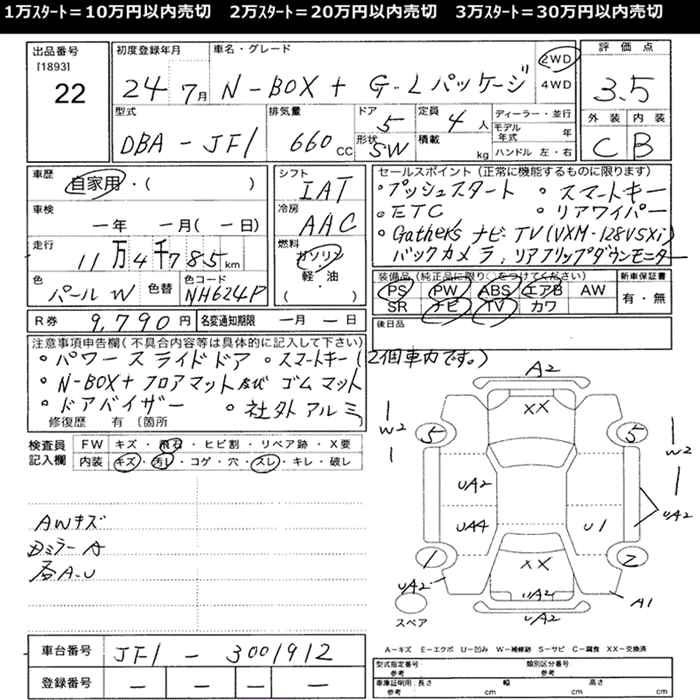 1万ｽﾀｰﾄ＝10万円以内売切　2万ｽﾀｰﾄ＝20万円以内売切　3万ｽﾀｰﾄ＝30万円以内売切
出品番号
[1893]
22
初度登録年月
24 7月
車名・グレード
N-BOX+ G・Lパッケージ
2WD
4WD
評価点
3.5
外装 内装
C B
型式
DBA-JF1
排気量
660 CC
ドア
5
形状
SW
定員
4 人
積載
kg
ディーラー・並行
モデル年式 年
ハンドル 左・右
車歴
自家用・( )
車検
ー年 ー月(ー日)
走行
11万4千785km
色
パールW
色替
色コード
NH624P
シフト
IAT
冷房
AAC
燃料
ガソリン
軽・油
( )
セールスポイント（正常に機能するものに限ります）
・プッシュスタート ・スマートキー
・ETC ・リアワイパー
・Gathers ナビ TV(VXM-128VSXi)
バックカメラ，リアフリップダウンモニター
装備品（純正品に限り○をつけてください）
PS PW ABS エアB AW
SR ナビ TV カワ
新車保証書
有・無
R券
9,790円
名変通知期限
ー月ー日
後日品
注意事項申告欄(不具合内容等は具体的に記入して下さい)
・パワースライドドア ・スマートキー(2個車内です。)
・N-BOX+ フロアマット及び ゴムマット
・ドアバイザー ・社外アルミ
修復歴 有 〔箇所
検査員
記入欄
FW キズ・飛石・ヒビ割・リペア跡・X要
内装 キズ・汚レ・コゲ・穴・スレ・キレ・破レ
AWキズ
ミラーA
A.U
A2
XX
W2
5
5
W2
UA2
UA2
UA4
U1
1
2
XX
UA2
UA2
UA2
A1
スペア
A−キズ E−エクボ U−凹み W−補修跡 S−サビ C−腐食 XX−交換済
車台番号
JF1 - 3001912
登録番号
ー ー ー ー
型式指定番号
参考
類別区分番号
車庫証明用：長さ 幅 高さ
参考 cm cm cm